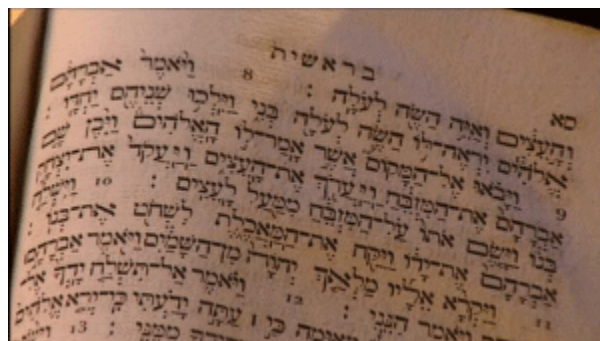 סא בראשית
וְהָעֵצִים וְאַיֵּה הַשֶּׂה לְעֹלָה : 8 וַיֹּאמֶר אַבְרָהָם
אֱלֹהִים יִרְאֶה־לּוֹ הַשֶּׂה לְעֹלָה בְּנִי וַיֵּלְכוּ שְׁנֵיהֶם יַחְדָּו :
9 וַיָּבֹאוּ אֶל־הַמָּקוֹם אֲשֶׁר אָמַר־לוֹ הָאֱלֹהִים וַיִּבֶן שָׁם
אַבְרָהָם אֶת־הַמִּזְבֵּחַ וַיַּעֲרֹךְ אֶת־הָעֵצִים וַיַּעֲקֹד אֶת־יִצְחָק
בְּנוֹ וַיָּשֶׂם אֹתוֹ עַל־הַמִּזְבֵּחַ מִמַּעַל לָעֵצִים : 10 וַיִּשְׁלַח
אַבְרָהָם אֶת־יָדוֹ וַיִּקַּח אֶת־הַמַּאֲכֶלֶת לִשְׁחֹט אֶת־בְּנוֹ :
11 וַיִּקְרָא אֵלָיו מַלְאַךְ יְהוָה מִן־הַשָּׁמַיִם וַיֹּאמֶר אַבְרָהָם
וַיֹּאמֶר הִנֵּנִי : 12 וַיֹּאמֶר אַל־תִּשְׁלַח יָדְךָ אֶל
מְאוּמָה כִּי ׀ עַתָּה יָדַעְתִּי כִּי־יְרֵא אֱלֹהִים
מִמֶּנִּי : 13